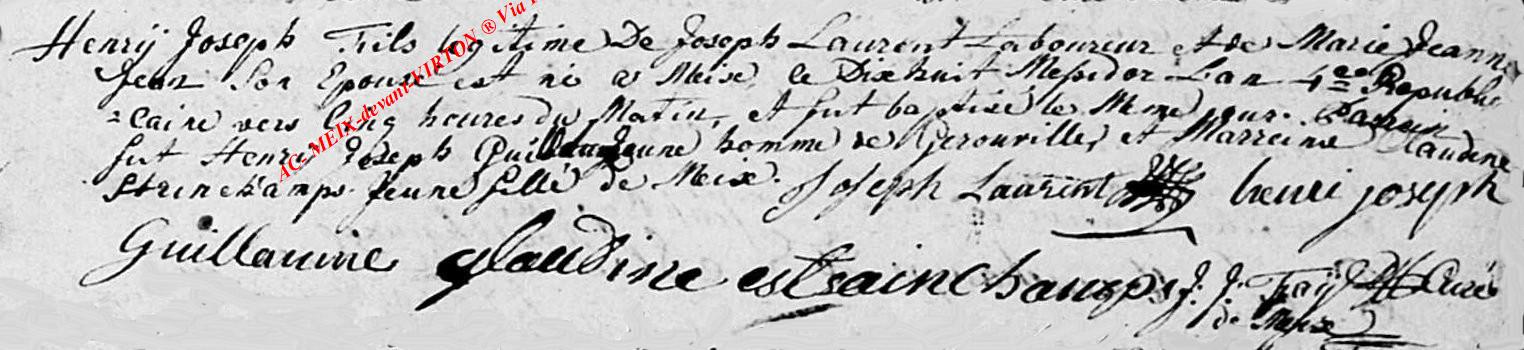 Henry Joseph Fils legitime De Joseph Laurent Laboureur et de Marie Jeanne
Jean Son Epouse est né a Meix le Dixhuit Messidor Lan 4me Republi
=caine vers Cinq heures du Matin, et fut baptisé le Meme jour. Parain
fut Henry Joseph Guillaume jeune homme de Gerouville, et Marreine Claudine
Strinckamps Jeune fille de Meix. Joseph Laurent henri joseph
Guillaume glaudine estrainchamps J. J. Curé
de Meix
AC-MEIX-devant-VIRTON ® Via